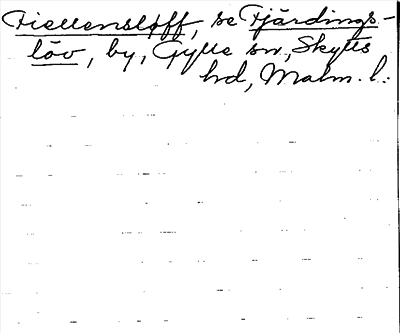 Fiellensløff, se Fjärdings-
löv, by, Gylle sn, Skytts
hd, Malm. l.